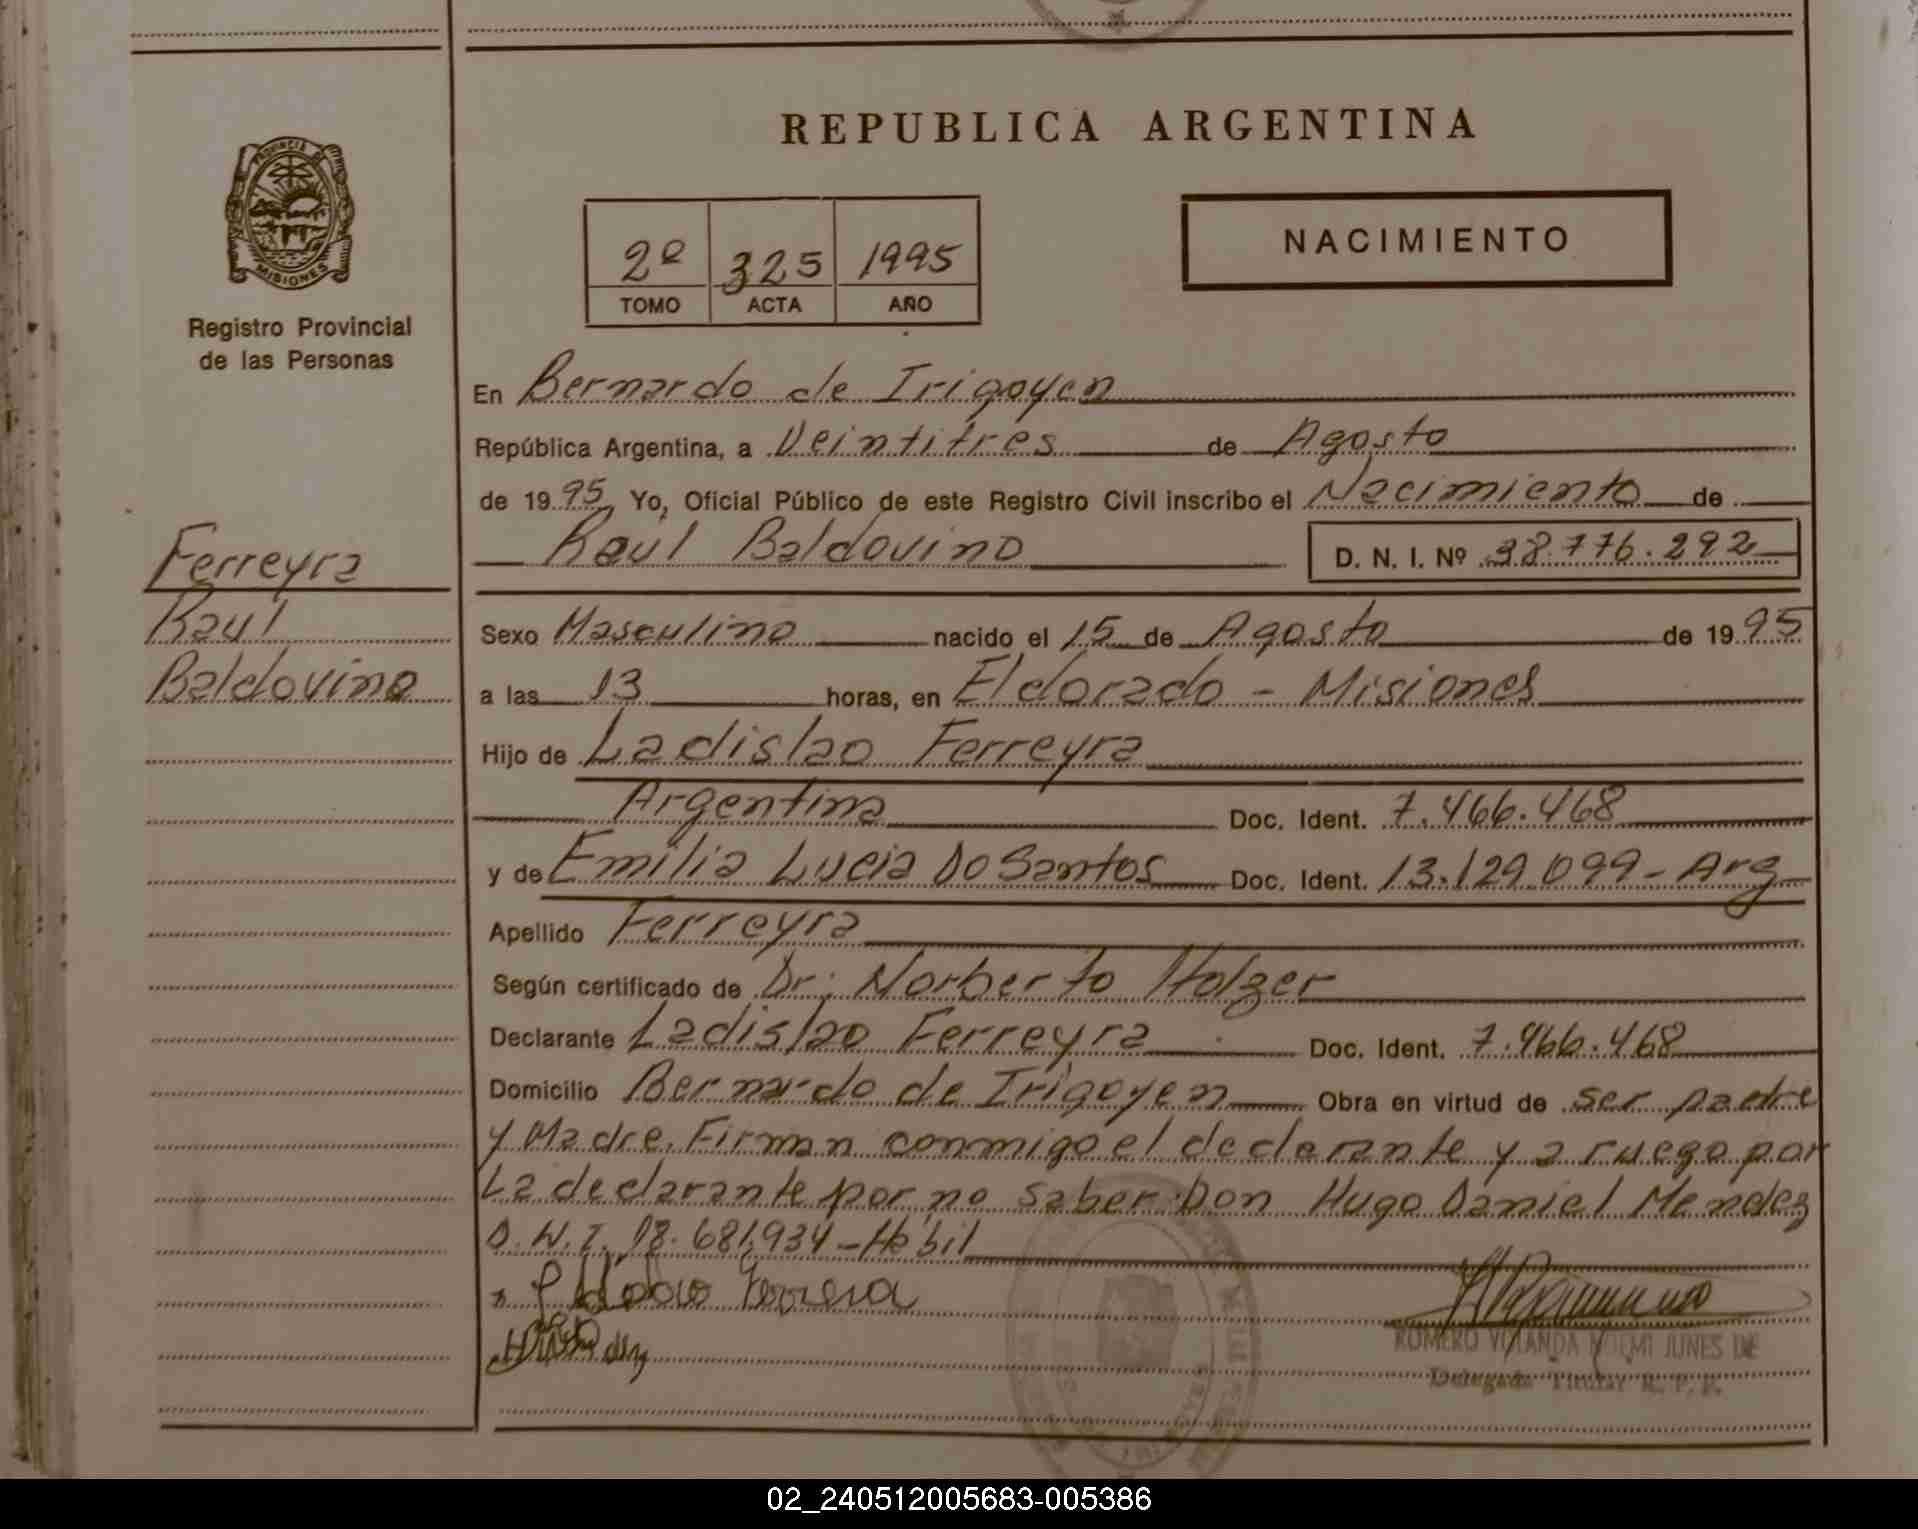 PROVINCIA DE
MISIONES
Registro Provincial
de las Personas
Ferreyra
Raul
Baldovino
REPUBLICA ARGENTINA
2º 325 1995
TOMO ACTA AÑO
NACIMIENTO
En Bernardo de Irigoyen
República Argentina, a Veintitres de Agosto
de 1995 Yo, Oficial Público de este Registro Civil inscribo el Nacimiento de
Raúl Baldovino D. N. I. Nº 38.776.292
Sexo Masculino nacido el 15 de Agosto de 1995
a las 13 horas, en Eldorado - Misiones
Hijo de Ladislao Ferreyra
Argentina Doc. Ident. 7.466.468
y de Emilia Lucia Do Santos Doc. Ident. 13.129.099 - Arg
Apellido Ferreyra
Según certificado de Dr: Norberto Holzer
Declarante Ladislao Ferreyra Doc. Ident. 7.466.468
Domicilio Bernardo de Irigoyen Obra en virtud de ser padre
y Madre. Firman conmigo el declarante y a ruego por
La declarante por no saber Don Hugo Daniel Mendez
D.N.I. 18.681.934 - Hábil
ROMERO YOLANDA NOEMI JUNES DE
Delegada Titular R. P. P.
02_240512005683-005386